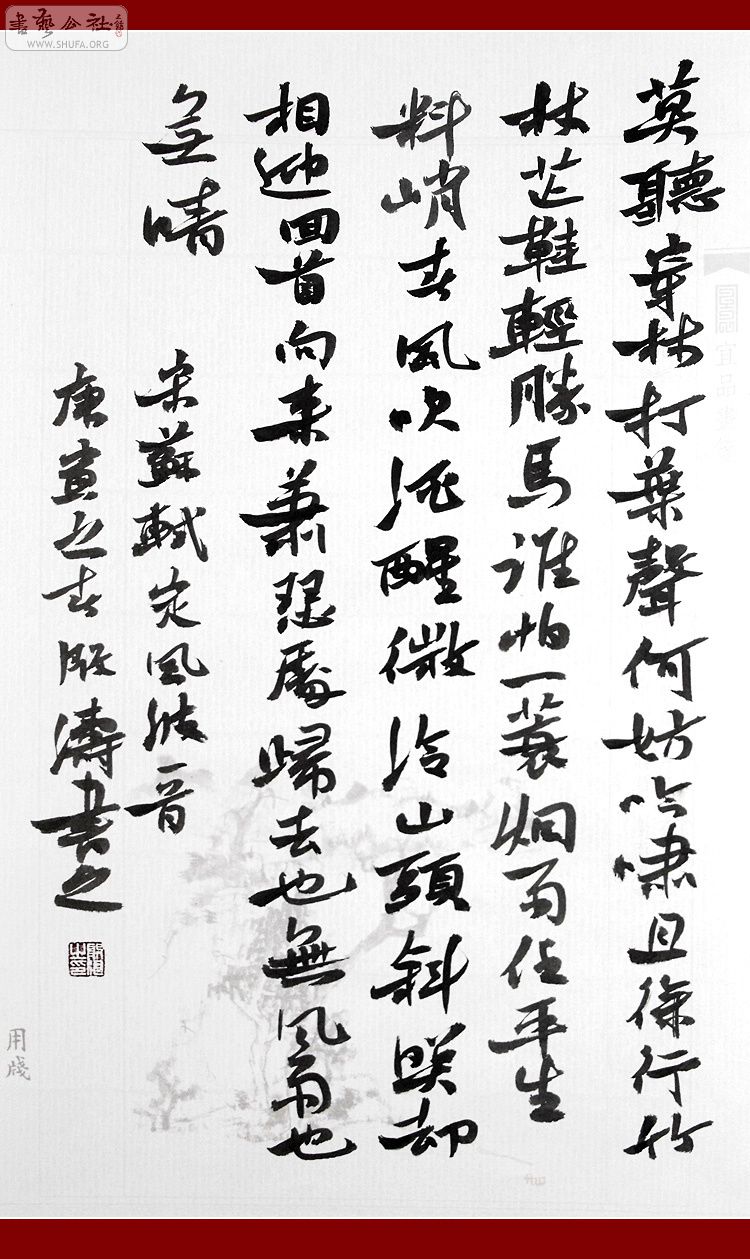 書藝公社
WWW.SHUFA.ORG
莫聽穿林打葉聲何妨吟嘯且徐行竹
杖芒鞋輕勝馬誰怕一蓑烟雨任平生
料峭春風吹酒醒微冷山頭斜照却
相迎回首向来蕭瑟處歸去也無風雨也
無晴
宋蘇軾定風波一首
庚寅之春濤書之
宜品
用牋